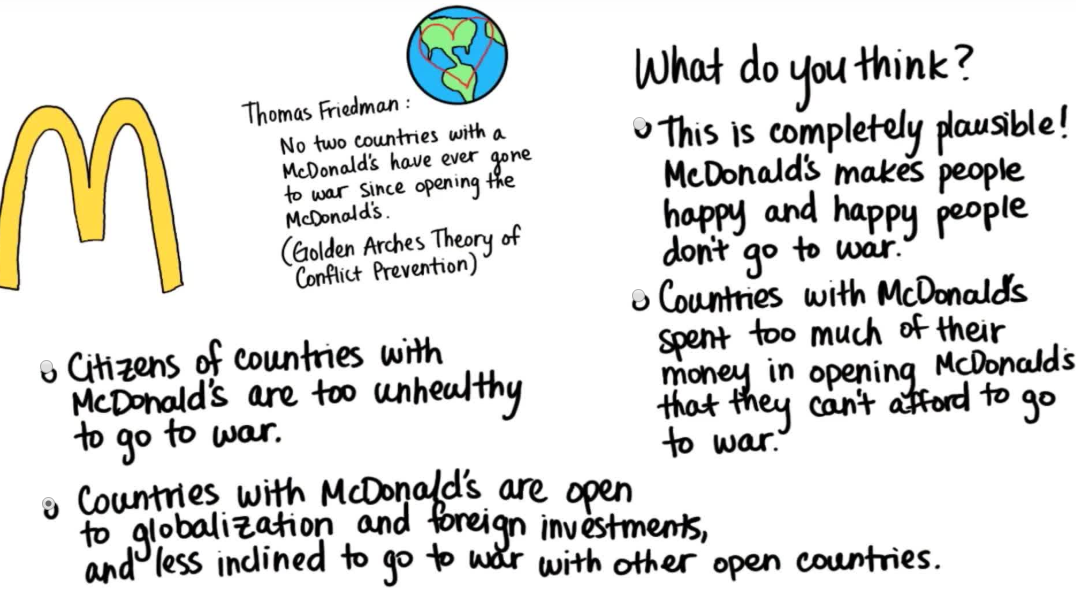 Thomas Friedman:
No two countries with a
McDonald's have ever gone
to war since opening the
McDonald's.
(Golden Arches Theory of
Conflict Prevention)
What do you think?
This is completely plausible!
McDonald's makes people
happy and happy people
don't go to war.
Countries with McDonald's
spent too much of their
money in opening McDonald's
that they can't afford to go
to war.
Citizens of countries with
McDonald's are too unhealthy
to go to war.
Countries with McDonald's are open
to globalization and foreign investments,
and less inclined to go to war with other open countries.